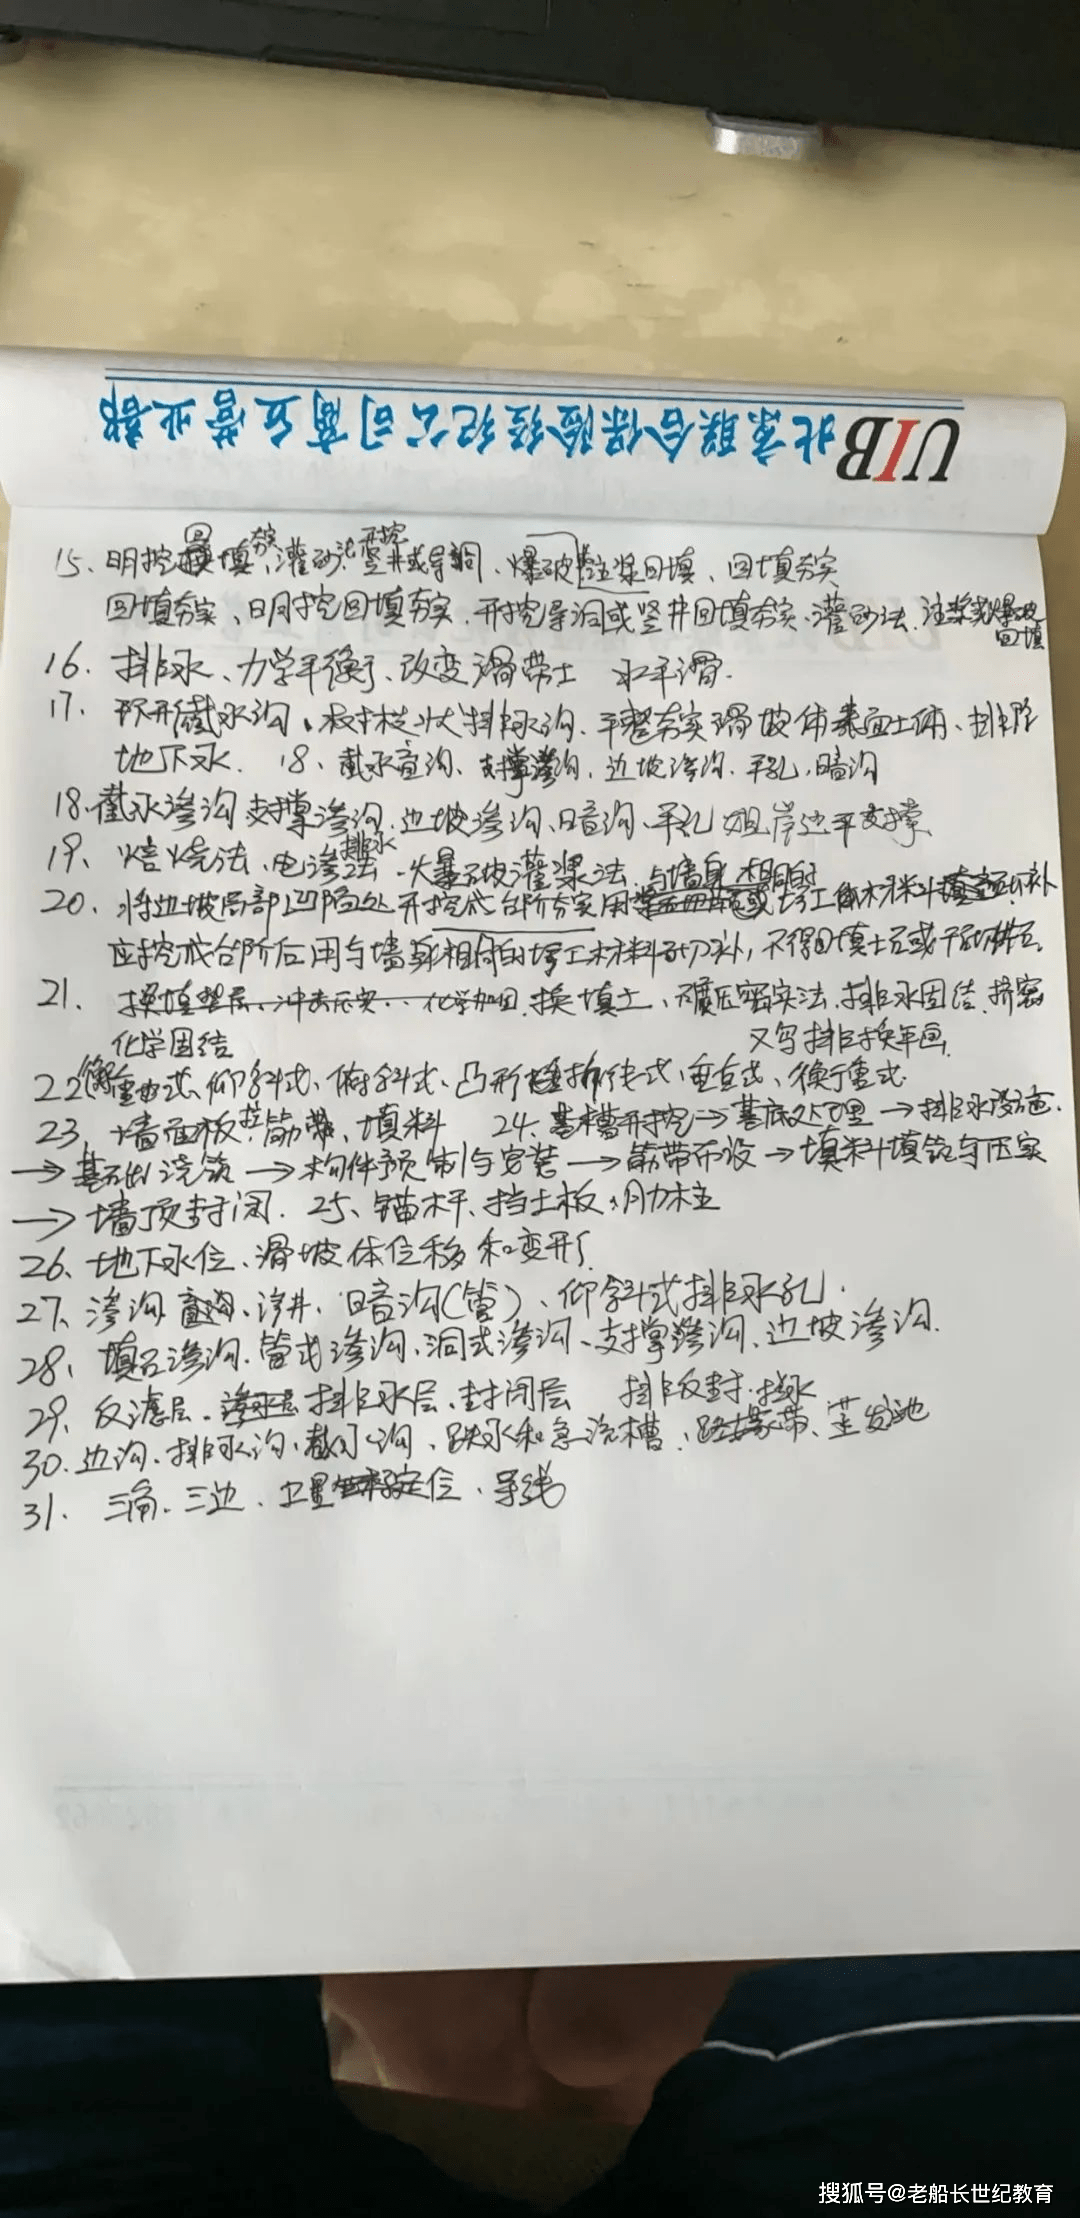 UIB北京联合保险经纪公司商丘营业部
15、明挖回填夯实、灌砂法、开挖竖井或导洞、爆破注浆回填、回填夯实
回填夯实、明挖回填夯实、开挖导洞或竖井回填夯实、灌砂法、注浆或爆破回填
16、排水、力学平衡、改变滑带土 水平滑.
17、环形截水沟、树枝状排水沟、平整夯实滑坡体表面土体、排除
地下水. 18、截水盲沟、支撑渗沟、边坡渗沟、平孔、暗沟
18.截水渗沟 支撑渗沟、边坡渗沟、暗沟、平孔 岸边平支撑
19、焙烧法、电渗排水法、爆破灌浆法. 与墙身相同的
20、将边坡局部凹陷处开挖成台阶夯实用 或圬工材料填 砌补
应挖成台阶后用与墙身相同的圬工材料砌补,不得回填土石或干砌片石.
21、换填垫层、冲击压实、化学加固 换填土、碾压密实法、排水固结、挤密
化学固结 又写排换年画
22、衡重式、仰斜式、俯斜式、凸形折线式、垂直式、衡重式
23、墙面板、拉筋带、填料 24、基槽开挖→基底处理→排水设施
→基础浇筑→构件预制与安装→筋带布设→填料填筑与压实
→墙顶封闭. 25、锚杆、挡土板、肋柱
26、地下水位、滑坡体位移和变形
27、渗沟 盲沟、渗井、暗沟(管)、仰斜式排水孔.
28、填石渗沟、管式渗沟、洞式渗沟、支撑渗沟、边坡渗沟.
29、反滤层、排水层、封闭层 排反封.
30、边沟、排水沟、截水沟、跌水和急流槽、路堤带、蒸发池
31、三角、三边、卫星定位、导线
搜狐号@老船长世纪教育